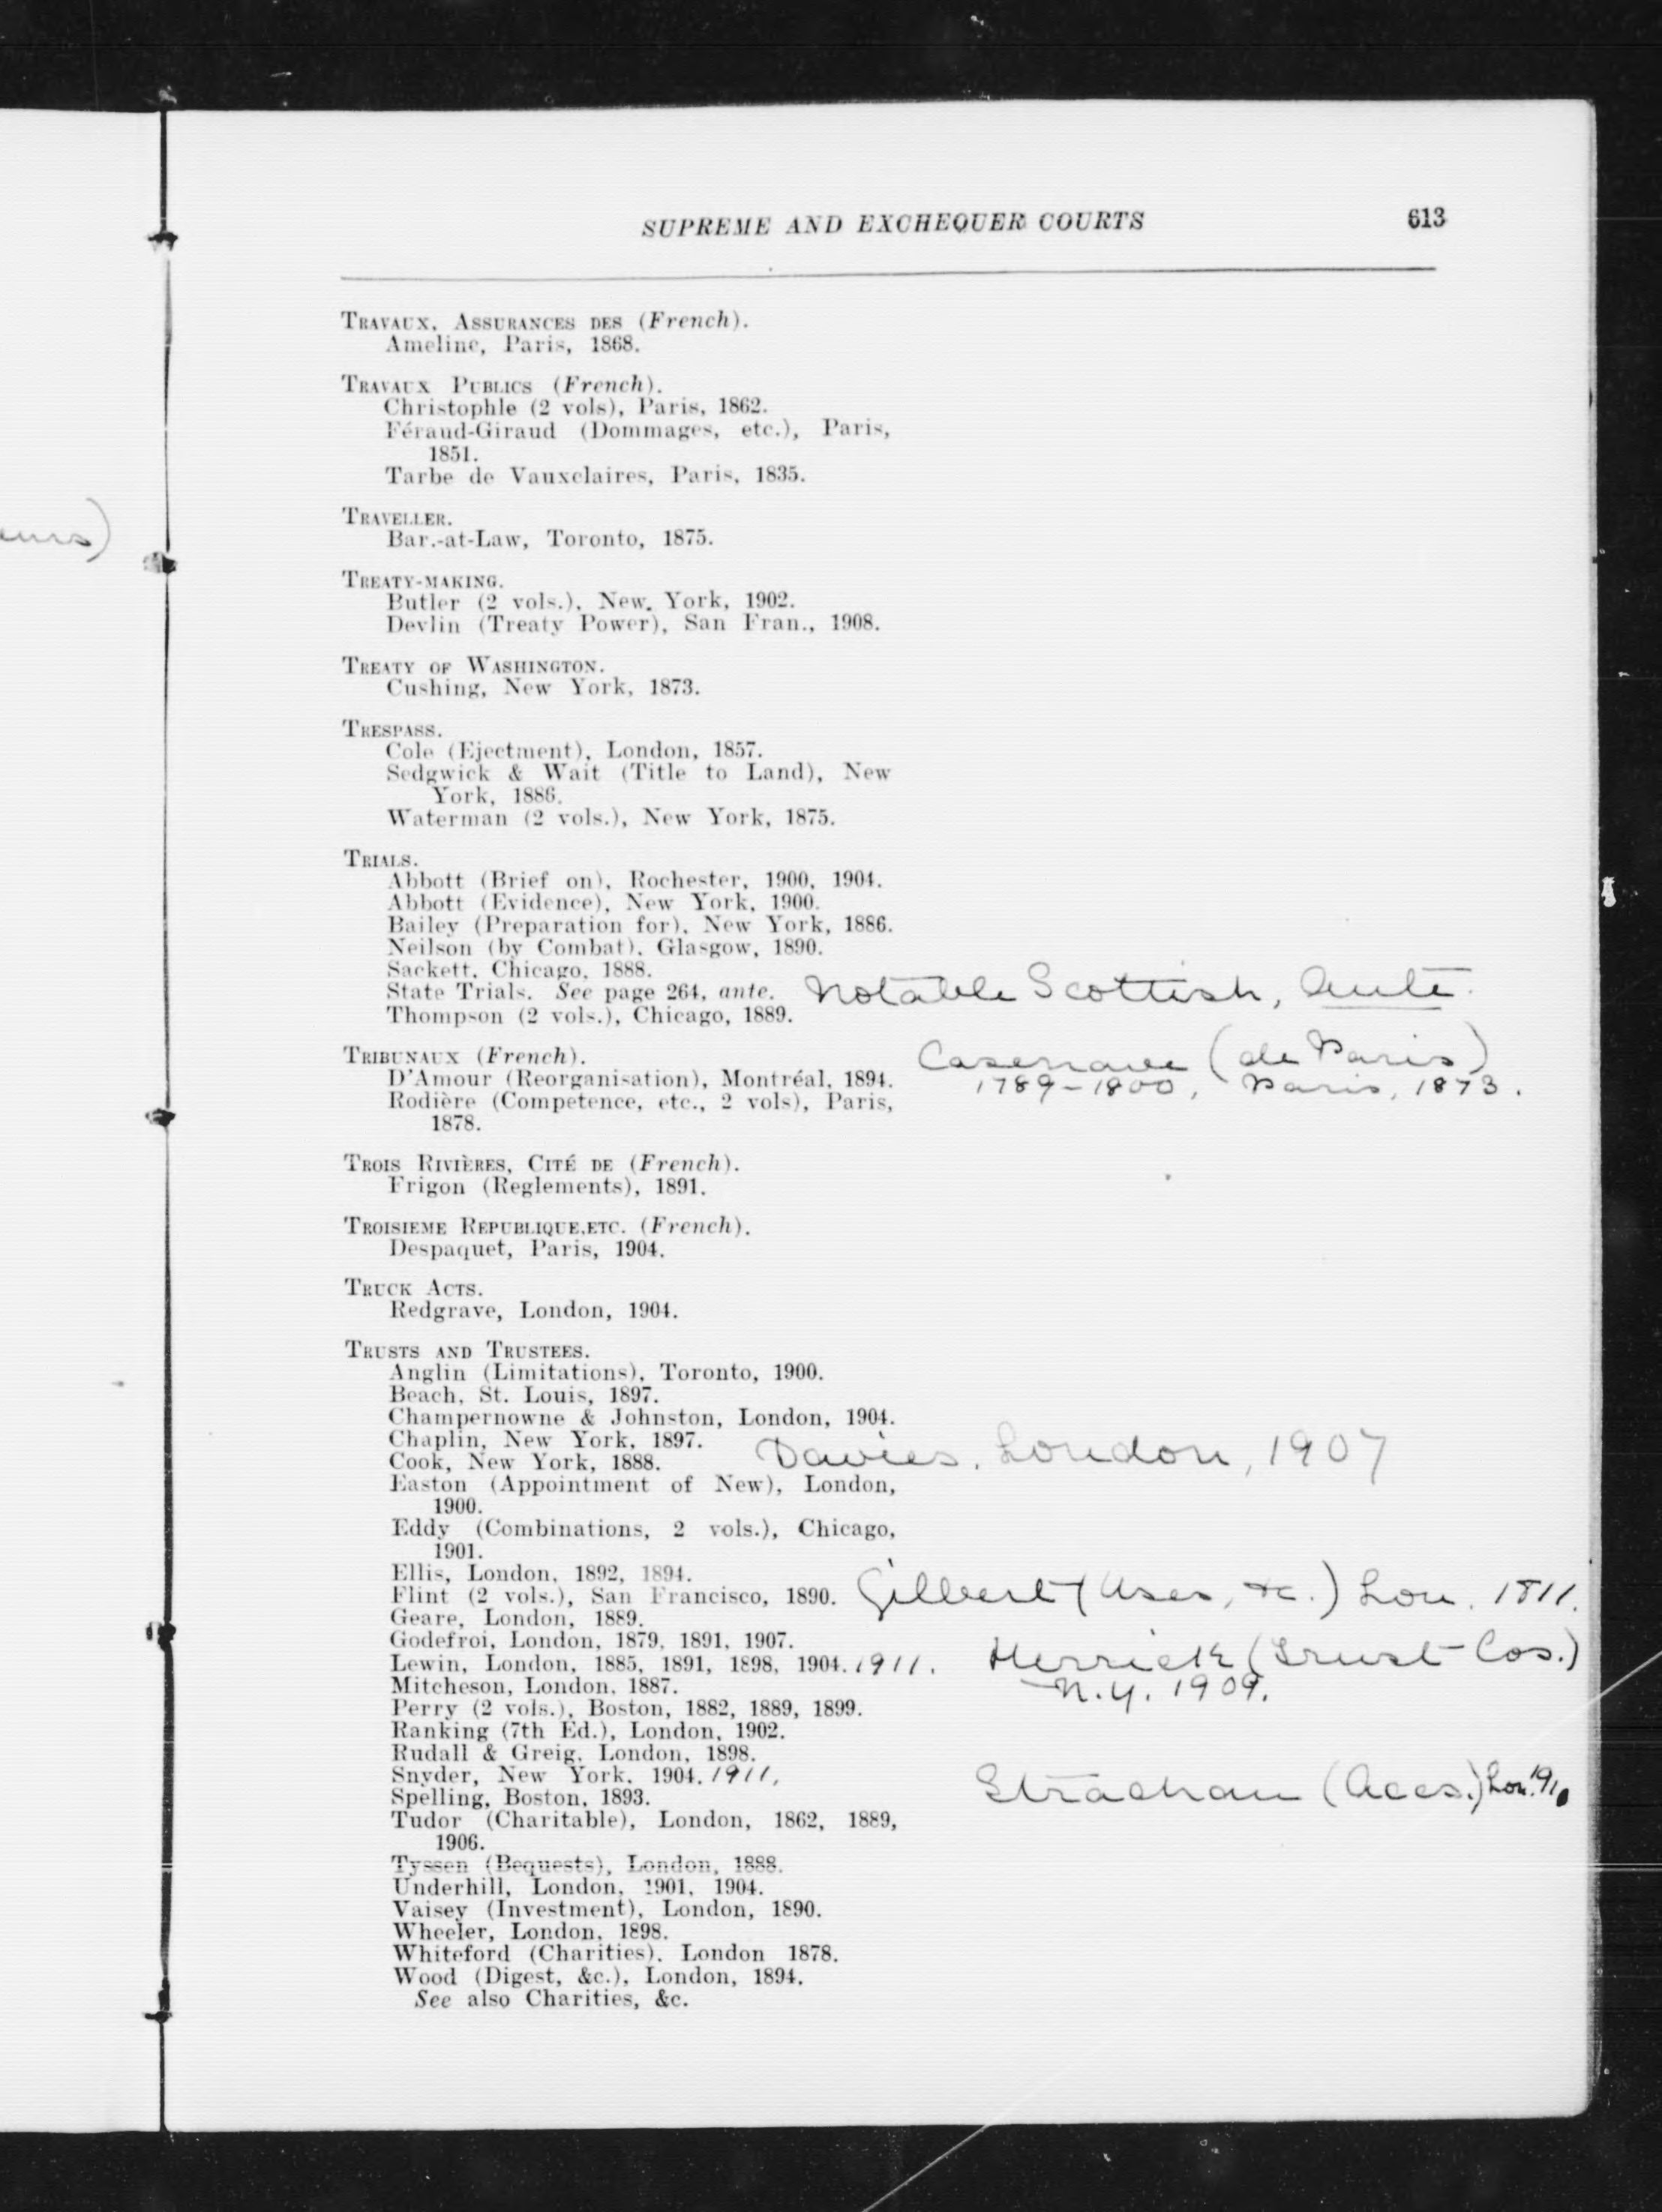 SUPREME AND EXCHEQUER COURTS 613
TRAVAUX, ASSURANCES DES (French).
Ameline, Paris, 1868.
TRAVAUX PUBLICS (French).
Christophle (2 vols), Paris, 1862.
Féraud-Giraud (Dommages, etc.), Paris,
1851.
Tarbe de Vauxclaires, Paris, 1835.
TRAVELLER.
Bar.-at-Law, Toronto, 1875.
TREATY-MAKING.
Butler (2 vols.), New. York, 1902.
Devlin (Treaty Power), San Fran., 1908.
TREATY OF WASHINGTON.
Cushing, New York, 1873.
TRESPASS.
Cole (Ejectment), London, 1857.
Sedgwick & Wait (Title to Land), New
York, 1886.
Waterman (2 vols.), New York, 1875.
TRIALS.
Abbott (Brief on), Rochester, 1900, 1904.
Abbott (Evidence), New York, 1900.
Bailey (Preparation for), New York, 1886.
Neilson (by Combat), Glasgow, 1890.
Sackett, Chicago, 1888.
State Trials. See page 264, ante. Notable Scottish, Ante.
Thompson (2 vols.), Chicago, 1889.
TRIBUNAUX (French). Casenave (de Paris)
D'Amour (Reorganisation), Montréal, 1894. 1789-1800, Paris, 1873.
Rodière (Competence, etc., 2 vols), Paris,
1878.
TROIS RIVIÈRES, CITÉ DE (French).
Frigon (Reglements), 1891.
TROISIEME REPUBLIQUE,ETC. (French).
Despaquet, Paris, 1904.
TRUCK ACTS.
Redgrave, London, 1904.
TRUSTS AND TRUSTEES.
Anglin (Limitations), Toronto, 1900.
Beach, St. Louis, 1897.
Champernowne & Johnston, London, 1904.
Chaplin, New York, 1897.
Cook, New York, 1888. Davies, London, 1907
Easton (Appointment of New), London,
1900.
Eddy (Combinations, 2 vols.), Chicago,
1901.
Ellis, London, 1892, 1894.
Flint (2 vols.), San Francisco, 1890. Gilbert (Uses, &c.) Lon. 1811.
Geare, London, 1889.
Godefroi, London, 1879, 1891, 1907.
Lewin, London, 1885, 1891, 1898, 1904. 1911. Herrick (Trust Cos.)
Mitcheson, London, 1887. N.Y. 1909.
Perry (2 vols.), Boston, 1882, 1889, 1899.
Ranking (7th Ed.), London, 1902.
Rudall & Greig, London, 1898.
Snyder, New York, 1904. 1911, Strachan (Accs.) Lon. 1910
Spelling, Boston, 1893.
Tudor (Charitable), London, 1862, 1889,
1906.
Tyssen (Bequests), London, 1888.
Underhill, London, 1901, 1904.
Vaisey (Investment), London, 1890.
Wheeler, London, 1898.
Whiteford (Charities), London 1878.
Wood (Digest, &c.), London, 1894.
See also Charities, &c.